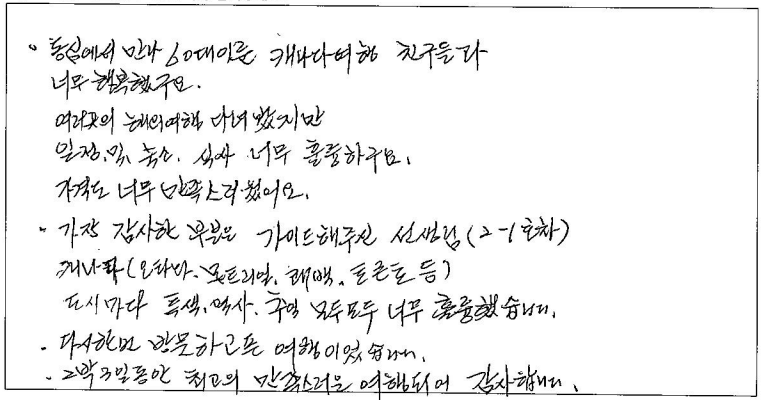 · 동심에서 만나 60대이른 캐나다여행 친구들과
너무 행복했구요.
여러곳의 해외여행 다녀 봤지만
일정, 및, 숙소, 식사 너무 훌륭하구요.
가격도 너무 만족스러웠어요.
· 가장 감사한 부분은 가이드해주신 선생님 (2-1호차)
캐나다 (오타와, 몬트리얼, 퀘백, 토론토 등)
도시마다 특색, 역사, 추억 모두모두 너무 훌륭했습니다.
· 다시한번 방문하고픈 여행이었습니다.
· 2박3일동안 최고의 만족스러운 여행되어 감사합니다.